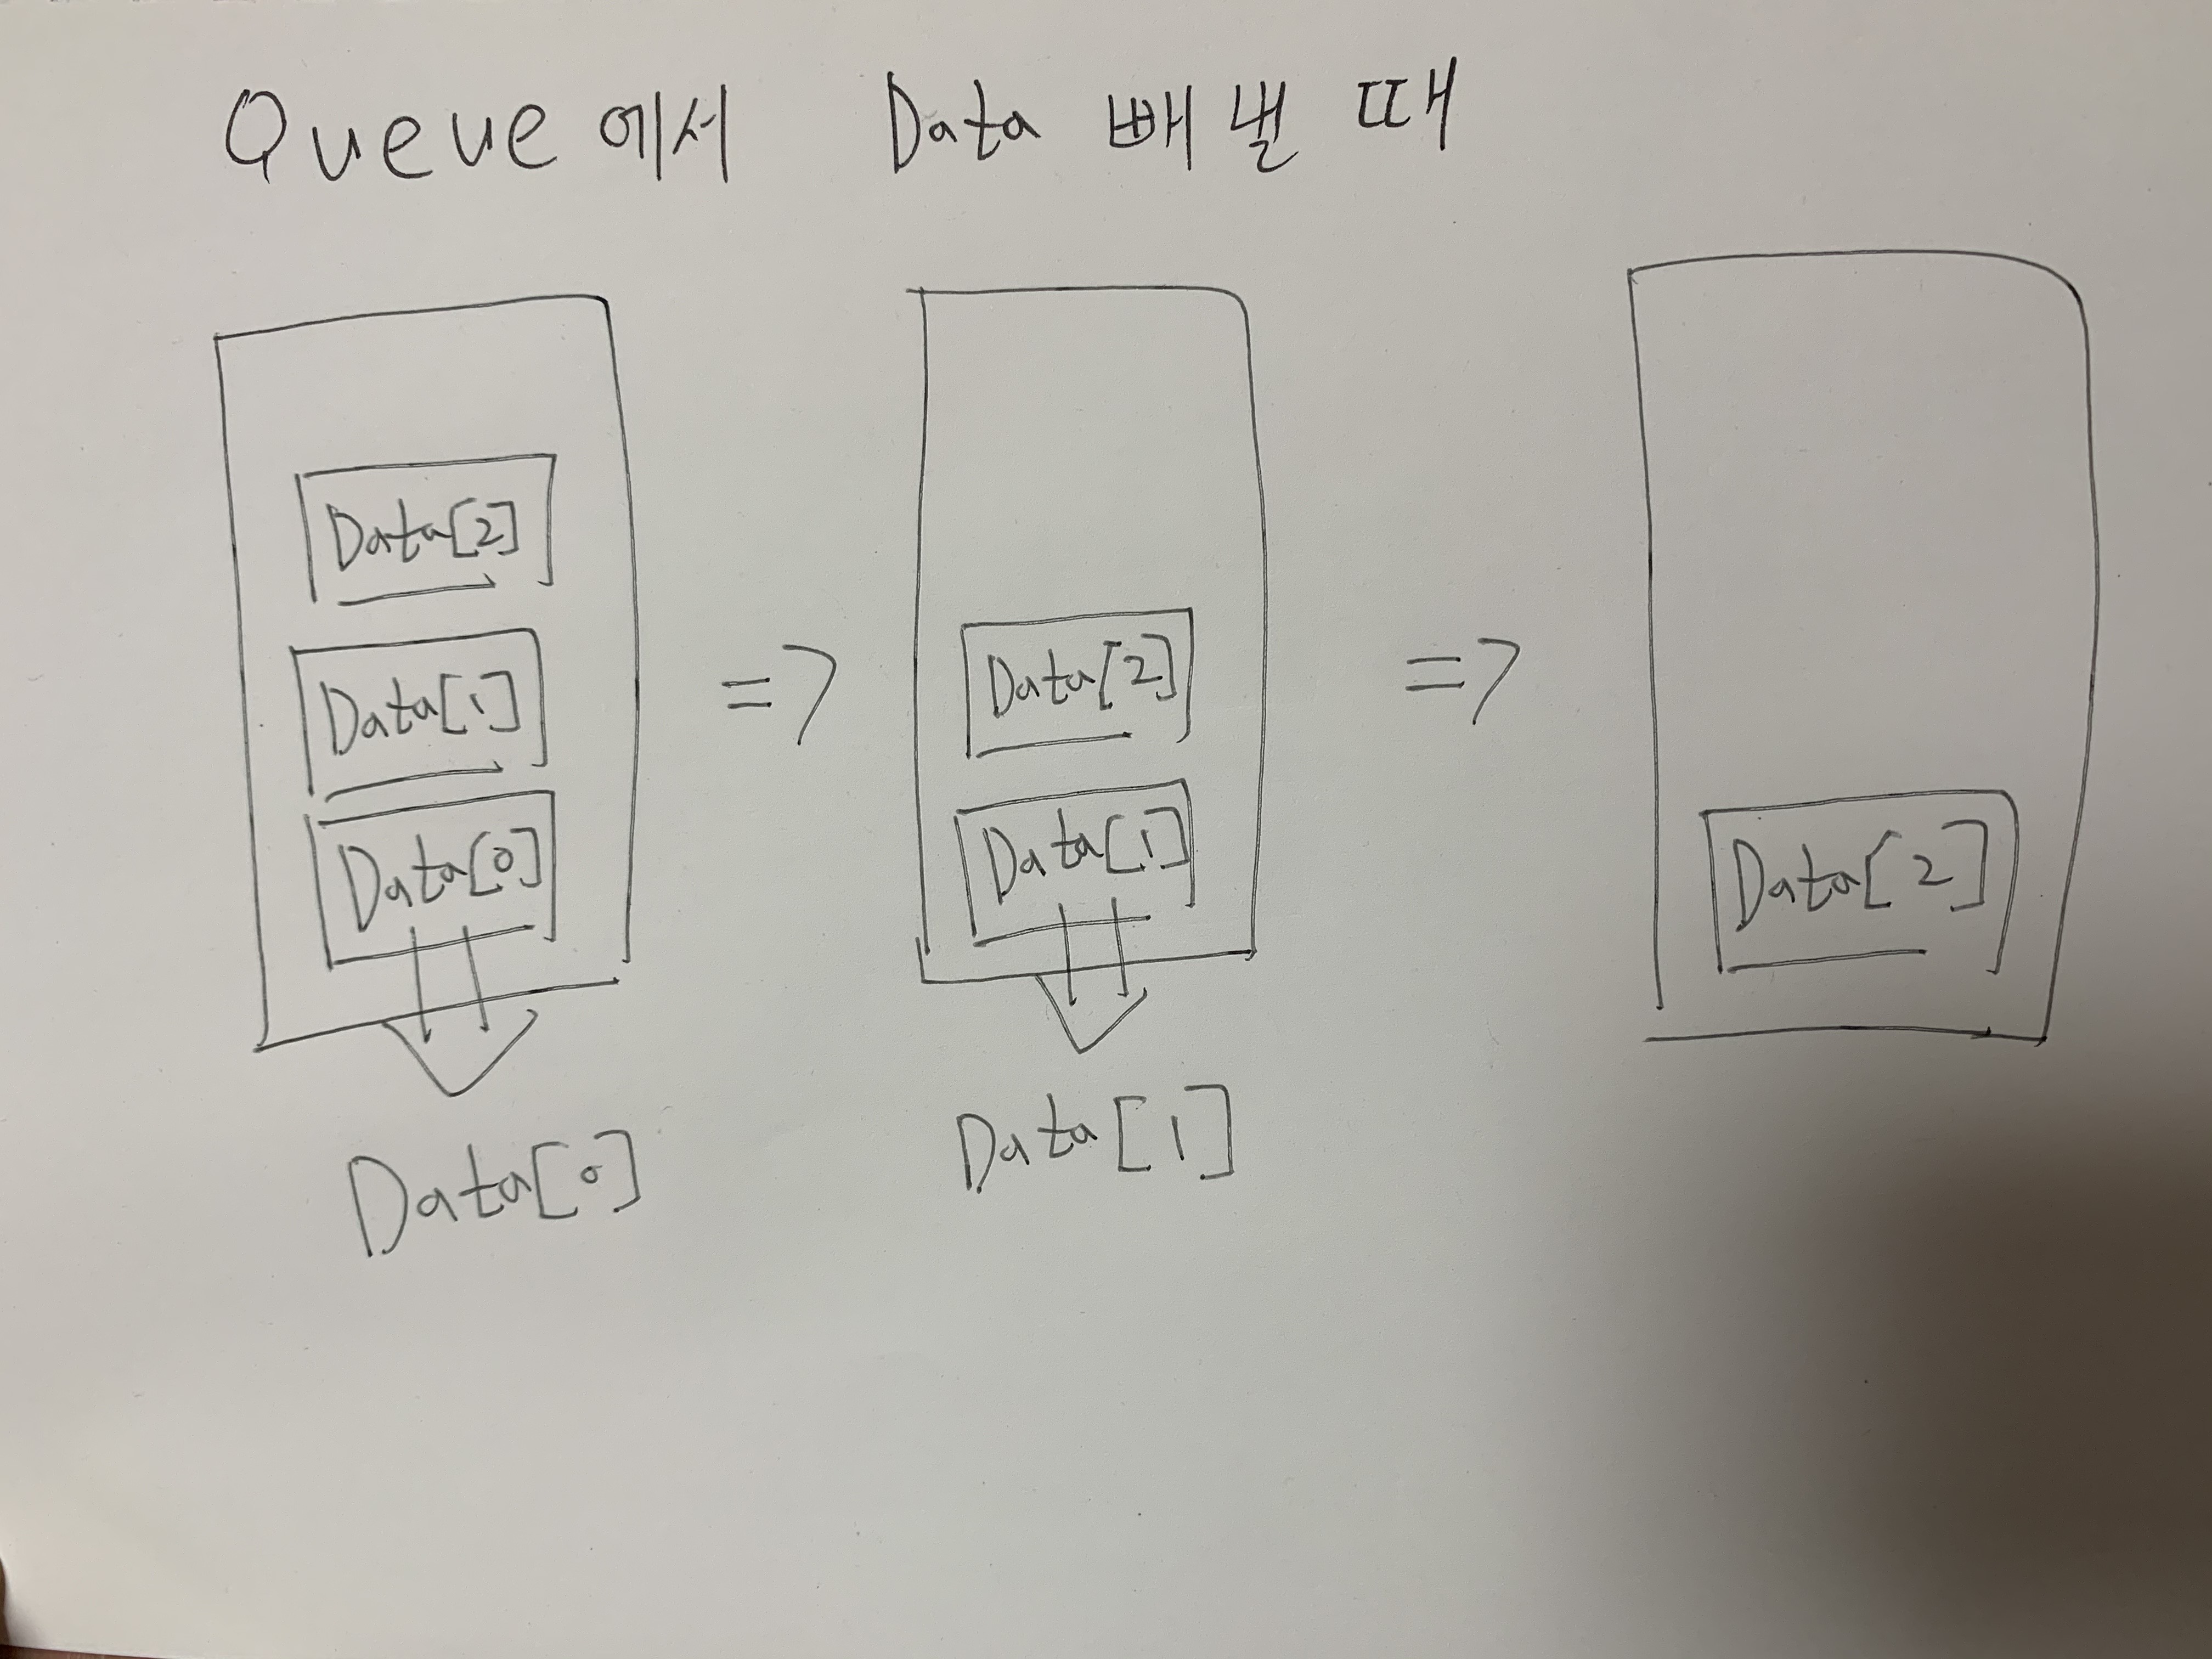 Queue에서 Data 빼낼 때
Data[2]
Data[1]
Data[0]
Data[0]
=>
Data[2]
Data[1]
Data[1]
=>
Data[2]